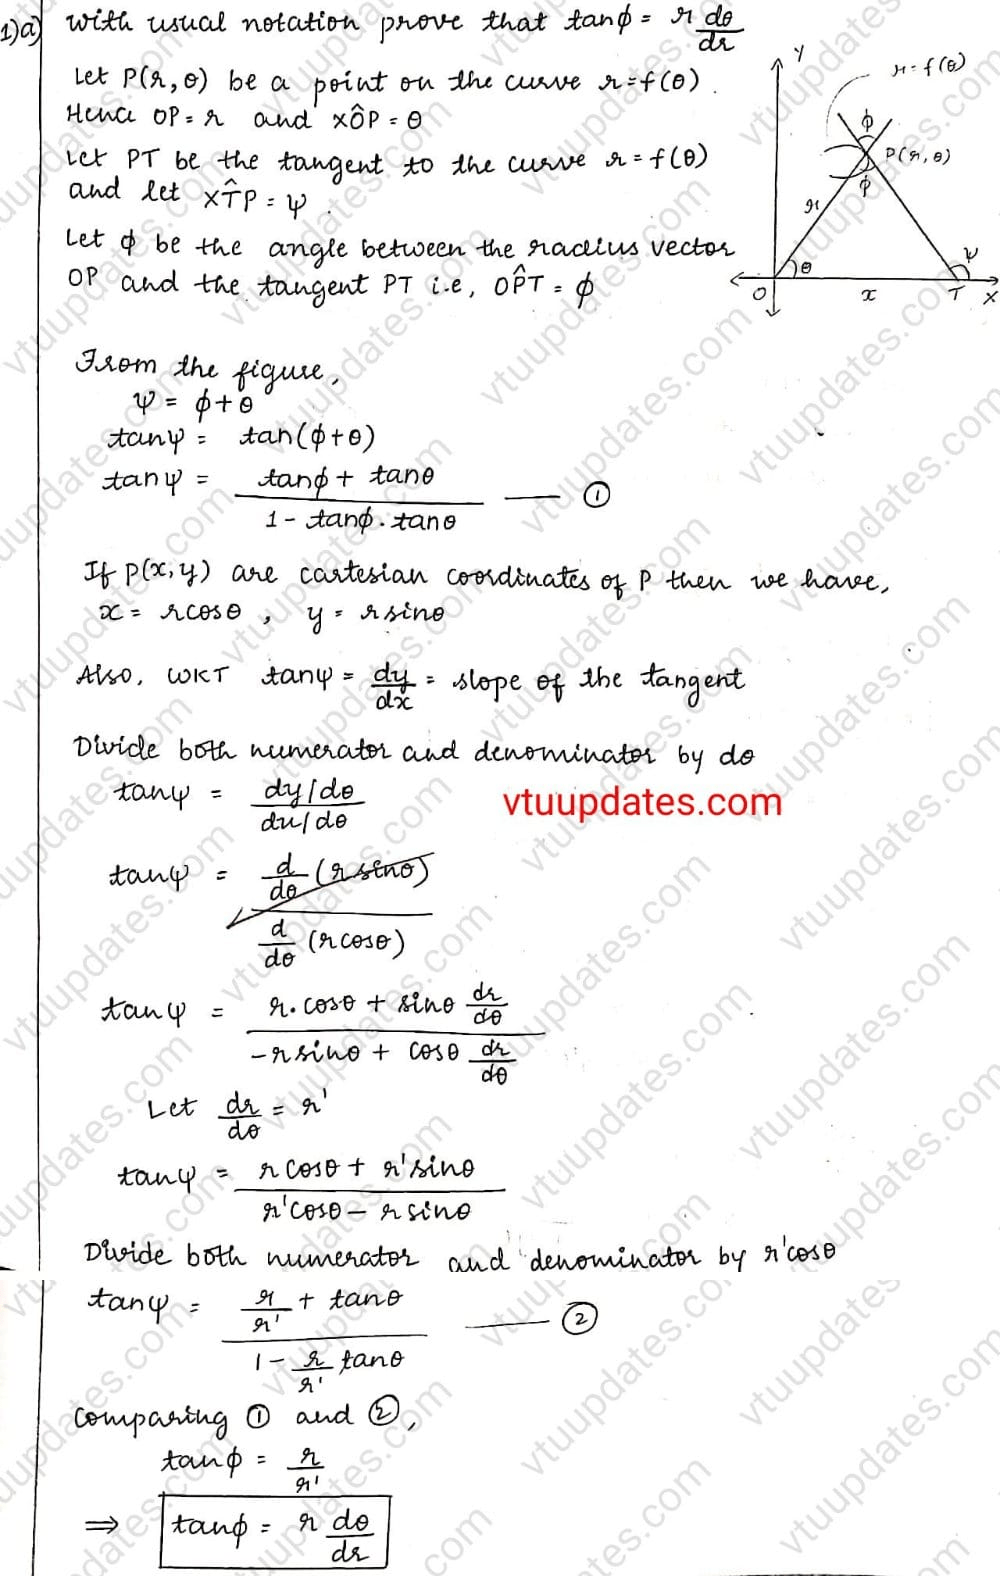 1)a) With usual notation prove that tanϕ = r dθ/dr
Let P(r,θ) be a point on the curve r=f(θ).
Hence OP=r and xÔP=θ
Let PT be the tangent to the curve r=f(θ)
and let xT̂P=ψ.
Let ϕ be the angle between the radius vector
OP and the tangent PT i.e, OP̂T=ϕ
Y
r=f(θ)
ϕ
P(r,θ)
ϕ
r
θ
ψ
O
x
T
X
From the figure,
ψ = ϕ+θ
tanψ = tan(ϕ+θ)
tanψ = (tanϕ + tanθ)/(1 - tanϕ.tanθ) — ①
If P(x,y) are cartesian coordinates of P then we have,
x = rcosθ, y = rsinθ
Also, WKT tanψ = dy/dx = slope of the tangent
Divide both numerator and denominator by dθ
tanψ = (dy/dθ)/(du/dθ)
vtuupdates.com
tanψ = (d/dθ (rsinθ))/(d/dθ (rcosθ))
tanψ = (r.cosθ + sinθ dr/dθ)/(-rsinθ + cosθ dr/dθ)
Let dr/dθ = r'
tanψ = (rcosθ + r'sinθ)/(r'cosθ - rsinθ)
Divide both numerator and denominator by r'cosθ
tanψ = (r/r' + tanθ)/(1 - r/r' tanθ) — ②
Comparing ① and ②,
tanϕ = r/r'
⇒ tanϕ = r dθ/dr